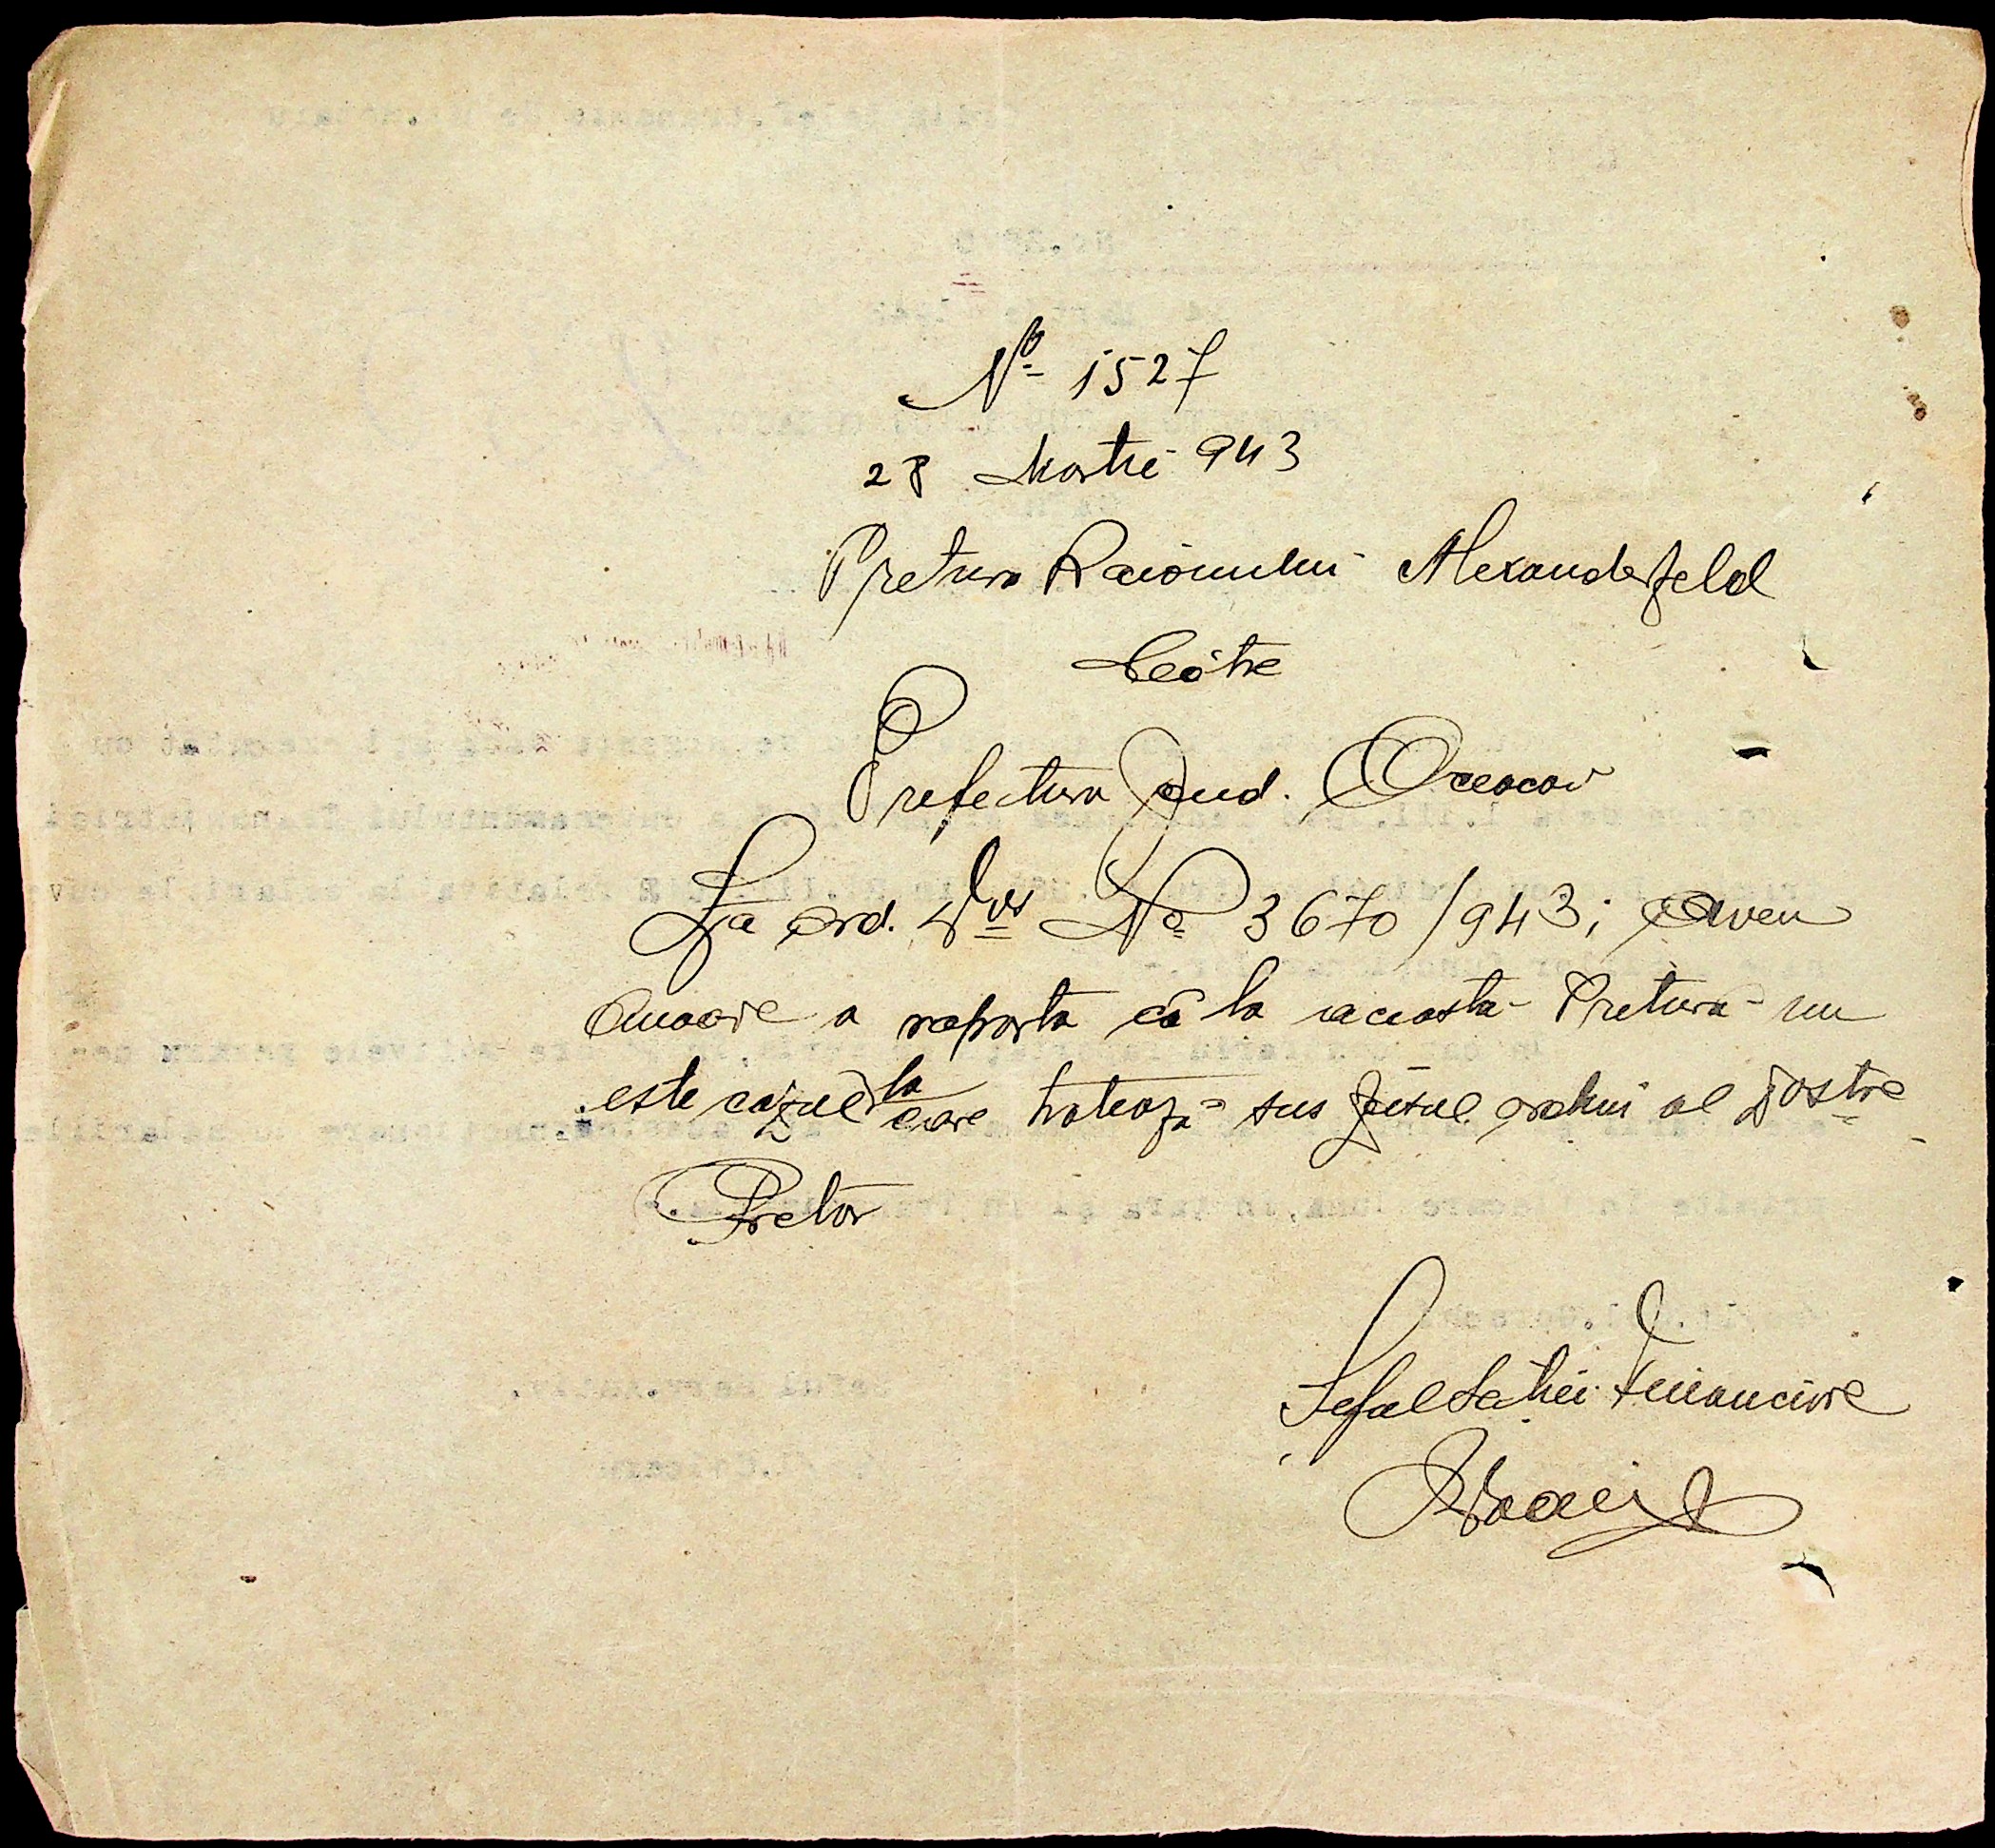 No 1527
28 Martie 943
Pretura Raionului Alexanderfeld
Către
Prefectura Jud. Oceacov
La ord. Dvs No 3670/943; Avem
Onoare a raporta că la aceasta Pretura nu
este cazul la care trateaza sus zisul ordin al Dvostre
Pretor
Seful Sectiei Financiare